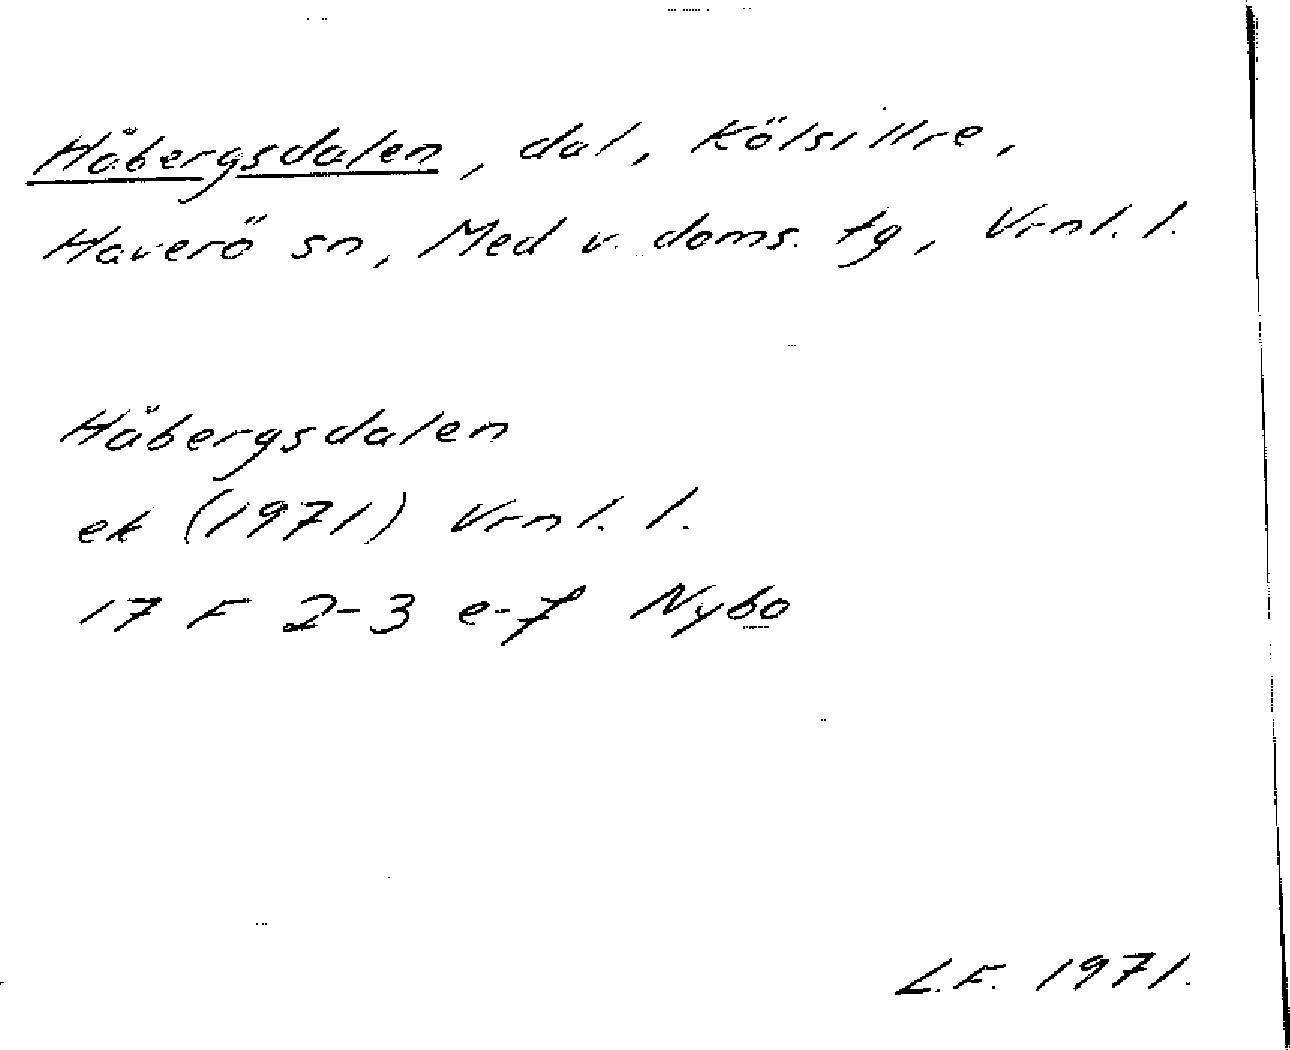 Håbergsdalen, dal, Kölsillre,
Haverö sn, Med v. doms. tg, Vrnl. l.
Håbergsdalen
ek (1971) Vrnl. l.
17 F 2-3 e-f Nybo
L.F. 1971.